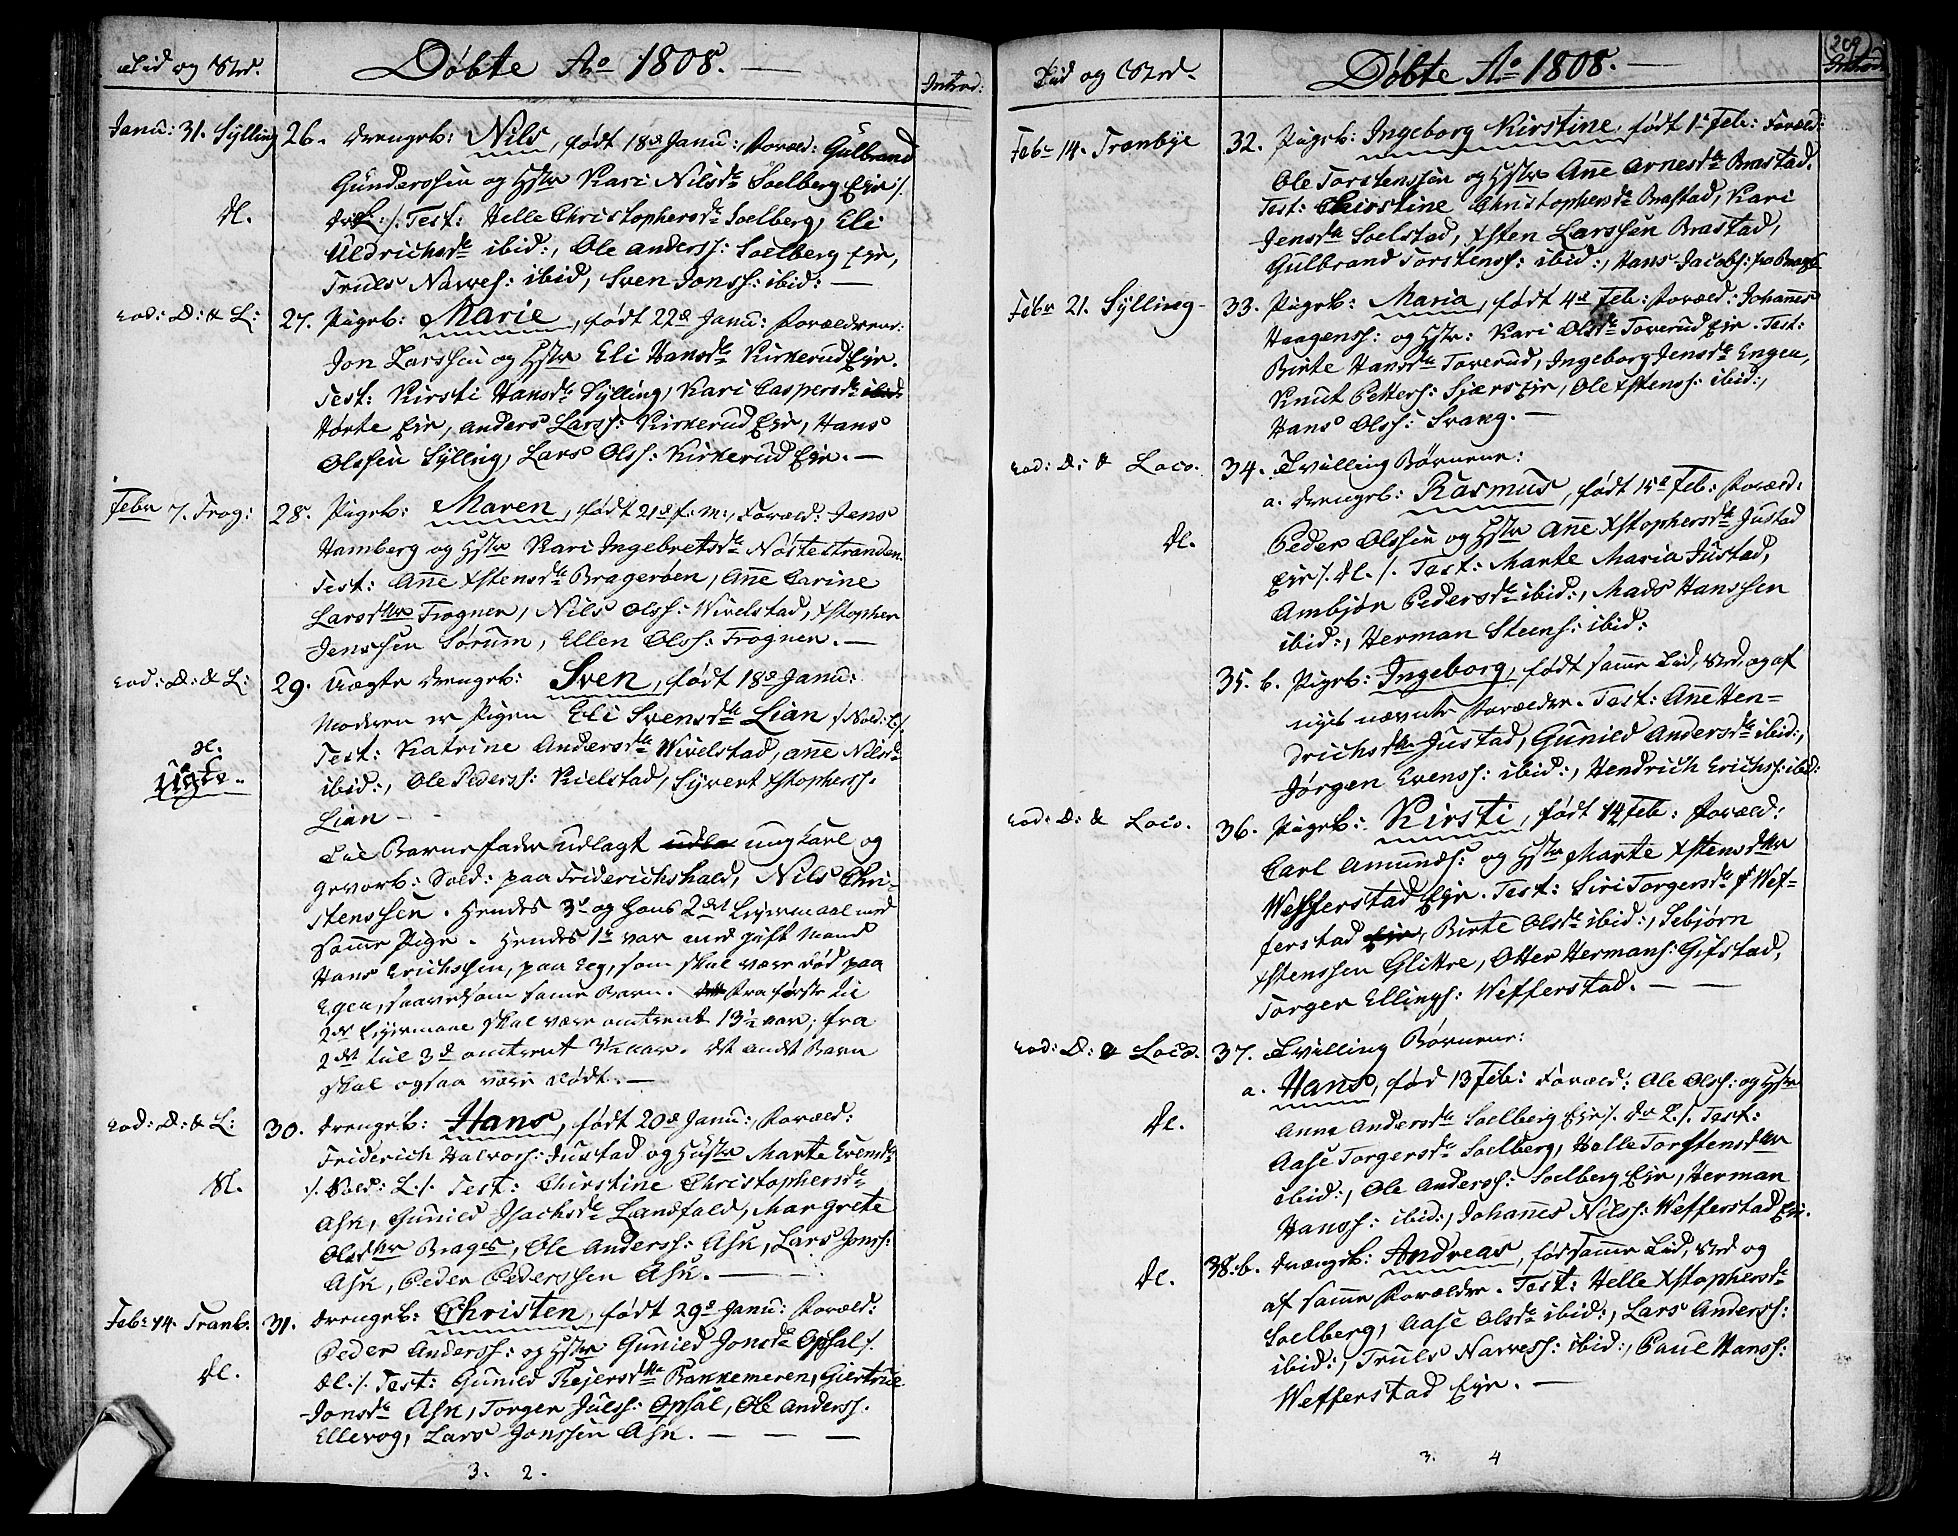 Tid og Sted.
Døbte Ao 1808.
Introd:
Janu: 31. Sylling
26. Drengeb: Nils, født 18de Janu:, Foræld: Gulbrand
Gunderssen og Hstr Kari Nilsdr Soelberg Eje /:
Test: Helle Christophersdr Soelberg, Eli
dl.
Uldrichsdr ibid:, Ole Anderss: Soelberg Eje,
Truls Narves: ibid, Sven Jonss: ibid:
eod: D: & L:
27. Pigeb: Marie, født 22de Janu: Forældrene:
Jon Larssen og Hstr Eli Hansdr Kirkerud Eje.
Test: Kirsti Hansdr Sylling, Kari Caspersdr ibid:
Hørte Eje, Anders Larss: Kirkerud Eje, Hans
Olssen Sylling, Lars Olss: Kirkerud Eje.
Febr 7. Frog:
28. Pigeb: Maren, født 21de f: m:, Foræld: Jens
Hamberg og Hstr Kari Ingebretsdr Nøstestranden.
Test: Anne Xstensdr Bragerøen, Anne Carine
Larsdtr Frognen, Nils Olss: Wivelstad, Xstopher
Jenssen Sørum, Ellen Olss: Frognen.
eod: D: & L:
29. Uægte Drengeb: Sven, født 18de Janu:
Moderen er Pigen Eli Svensdr Lian /: Nod: L:/
Test: Katrine Andersdr Wivelstad, Anne Nilsdr
dl.
Uægte.
ibid:, Ole Pederss: Kielstad, Syvert Xstopherss:
Lian
Til Barnefader udlagt udla ungkarl og
gevorb: Sold: paa Friderichshald, Nils Chri-
stenssen. Hendes 3de og hans 2det Lejermaal med
samme Pige. Hendes 1te var med gift Mand
Hans Erichssen, paa Eeg, som skal være død paa
Egea, saavelsom samme Barn. Fra første til
2det Lejermaal skal være omtrent 13½ aar; fra
2det til 3de omtrent 3½ aar. Det andet Barn
skal ogsaa være dødt.
eod: D: & L:
30. Drengeb: Hans, født 20de Janu:, Foræld:
Friderich Halvorss: Justad og Hustr Marte Evensdr
/: Nod: L:/ Test: Chirstine Christophersdr
dl.
Ask, Gunild Isachsdr Landfald, Margrete
Olsdtr Brages, Ole Anderss: Ask, Lars Jonss:
Ask, Peder Pederssen Ask.
Feb: 14. Tranb.
31. Drengeb: Christen, født 29de Janu: Foræld:
Peder Anderss: og Hstr Gunild Jonsdr Opsal /:
dl.
dl:/ Test: Gunild Rejersdtr Bakkemeren, Giertrue
Jonsdr Ask, Torger Juls: Opsal, Ole Anderss:
Ellevog, Lars Jonssen Ask.
3. 2.
209
Tid og Sted.
Døbte Ao 1808.
Introd
Feb: 14. Tranbye
32. Pigeb: Ingeborg Kirstine, født 1te Feb: Foræld:
Ole Torstenssen og Hstr Anne Arnesdr Brastad.
Test: Chirstine Christophersdr Brastad, Kari
Jensdr Soelstad, Xsten Larssen Brastad,
Gulbrand Torstenss: ibid:, Hans Jacobs: fra Brage
Febr 21. Sylling
33. Pigeb: Maria, født 4de Feb: Foræld: Johannes
Haagenss: og Hstr: Kari Olsdr Toverud Eje. Test:
Birte Hansdr Toverud, Ingeborg Jensdr Engen,
Knut Petterss: Siærs Eje, Ole Xstenss: ibid:,
Hans Olss: Svang.
eod: D: & Loco.
34. Tvilling Børnene:
a. Drengeb: Rasmus, født 15de Feb: Foræld:
Peder Olssen og Hstr Anne Xstophersdr Justad
dl.
Eje /: dl. /: Test: Marte Maria Justad,
Ambjør Pedersdr ibid:, Mads Hanssen
ibid:, Herman Steens: ibid:
35. b. Pigeb: Ingeborg, født samme Tid, Sted, og af
nyss nævnte Forældre. Test: Anne Hen-
drichsdtr Justad, Gunild Andersdr ibid:,
Jørgen Evenss: ibid:, Hendrich Erichss: ibid:
eod: D: & Loco.
36. Pigeb: Kirsti, født 14 Feb: Foræld:
Carl Amunds: og Hstr Marte Xstensdtr
Wefferstad Eje. Test: Siri Torgersdr Wef-
ferstad Eje, Birte Olsdr ibid:, Tebjørn
Xstenssen Glittre, Otter Hermans: Gifstad,
Torger Ellings: Wefferstad.
eod: D: & Loco.
37. Tvilling Børnene:
a. Hans, fød 13 Feb: Foræld: Ole Olss: og Hstr
dl.
Anne Andersdr Soelberg Eje /: dl /: Test:
Aase Torgersdr Soelberg, Helle Torstensdtr
ibid:, Ole Anderss: Soelberg Eje, Herman
Hanss: ibid:, Johannes Nilss: Wefferstad Eje.
dl.
38. b. Drengeb: Andreas, fød samme Tid, Sted og
af samme Forældre. Test: Helle Xstophersdr
Soelberg, Aase Olsdr ibid:, Lars Anderss:
ibid:, Truls Narvess: ibid:, Paul Hanss:
Wefferstad Eje.
3. 4